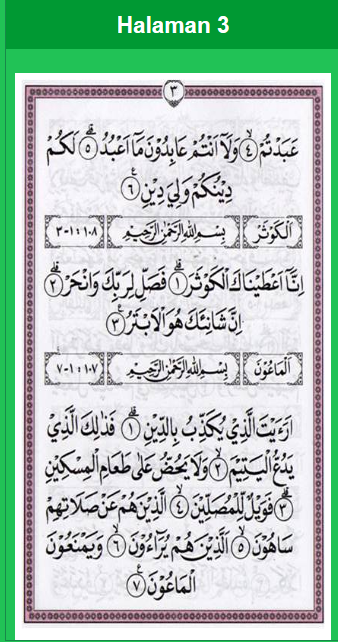 Halaman 3
٣
عَبَدْتُمْ ﴿٤﴾ وَلَآ اَنْتُمْ عَابِدُوْنَ مَآ اَعْبُدُ ﴿٥﴾ لَكُمْ
دِيْنُكُمْ وَلِيَ دِيْنِ ﴿٦﴾
اَلْكَوْثَرُ بِسْمِ اللهِ الرَّحْمٰنِ الرَّحِيْمِ ١٠٨ : ١-٣
اِنَّآ اَعْطَيْنَاكَ الْكَوْثَرَ ﴿١﴾ فَصَلِّ لِرَبِّكَ وَانْحَرْ ﴿٢﴾
اِنَّ شَانِئَكَ هُوَ الْاَبْتَرُ ﴿٣﴾
اَلْمَاعُوْنَ بِسْمِ اللهِ الرَّحْمٰنِ الرَّحِيْمِ ١٠٧ : ١-٧
اَرَءَيْتَ الَّذِيْ يُكَذِّبُ بِالدِّيْنِ ﴿١﴾ فَذٰلِكَ الَّذِيْ
يَدُعُّ الْيَتِيْمَ ﴿٢﴾ وَلَا يَحُضُّ عَلٰى طَعَامِ الْمِسْكِيْنِ
﴿٣﴾ فَوَيْلٌ لِلْمُصَلِّيْنَ ﴿٤﴾ الَّذِيْنَ هُمْ عَنْ صَلَاتِهِمْ
سَاهُوْنَ ﴿٥﴾ الَّذِيْنَ هُمْ يُرَآءُوْنَ ﴿٦﴾ وَيَمْنَعُوْنَ
الْمَاعُوْنَ ﴿٧﴾